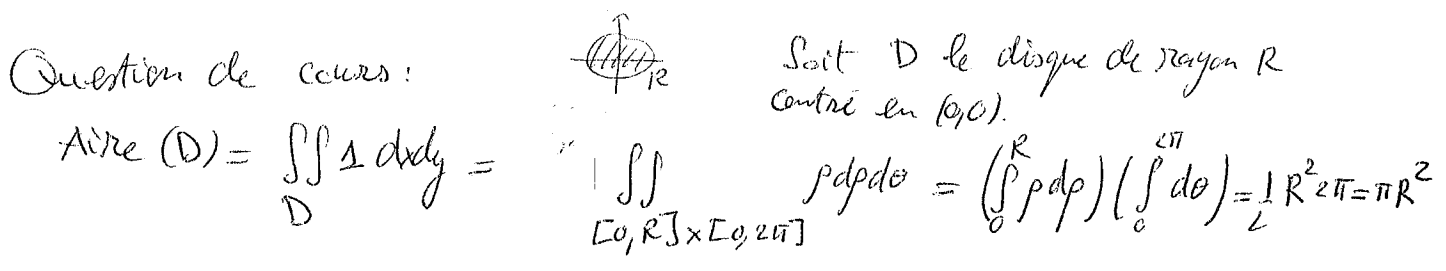 Question de cours :
R
Soit D le disque de rayon R
centré en (0,0).
Aire (D) = ∬_D 1 dxdy = ∬_{[0,R]×[0,2π]} ρdρdθ = (∫_0^R ρdρ)(∫_0^{2π} dθ) = 1/2 R² 2π = πR²